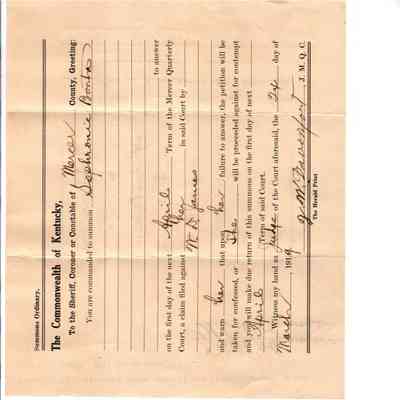 Summons Ordinary.
The Commonwealth of Kentucky,
To the Sheriff, Coroner or Constable of Mercer County, Greeting:
You are commanded to summon Sophronia Bonta
to answer
on the first day of the next April Term of the Mercer Quarterly
Court, a claim filed against her in said Court by
W. D. James
and warn her that upon her failure to answer, the petition will be
taken for confessed, or She will be proceeded against for contempt
and you will make due return of this summons on the first day of next
April Term of said Court.
Witness my hand as Judge of the Court aforesaid, the 24 day of
March, 1919
J. M. Davenport, J. M. Q. C.
The Herald Print